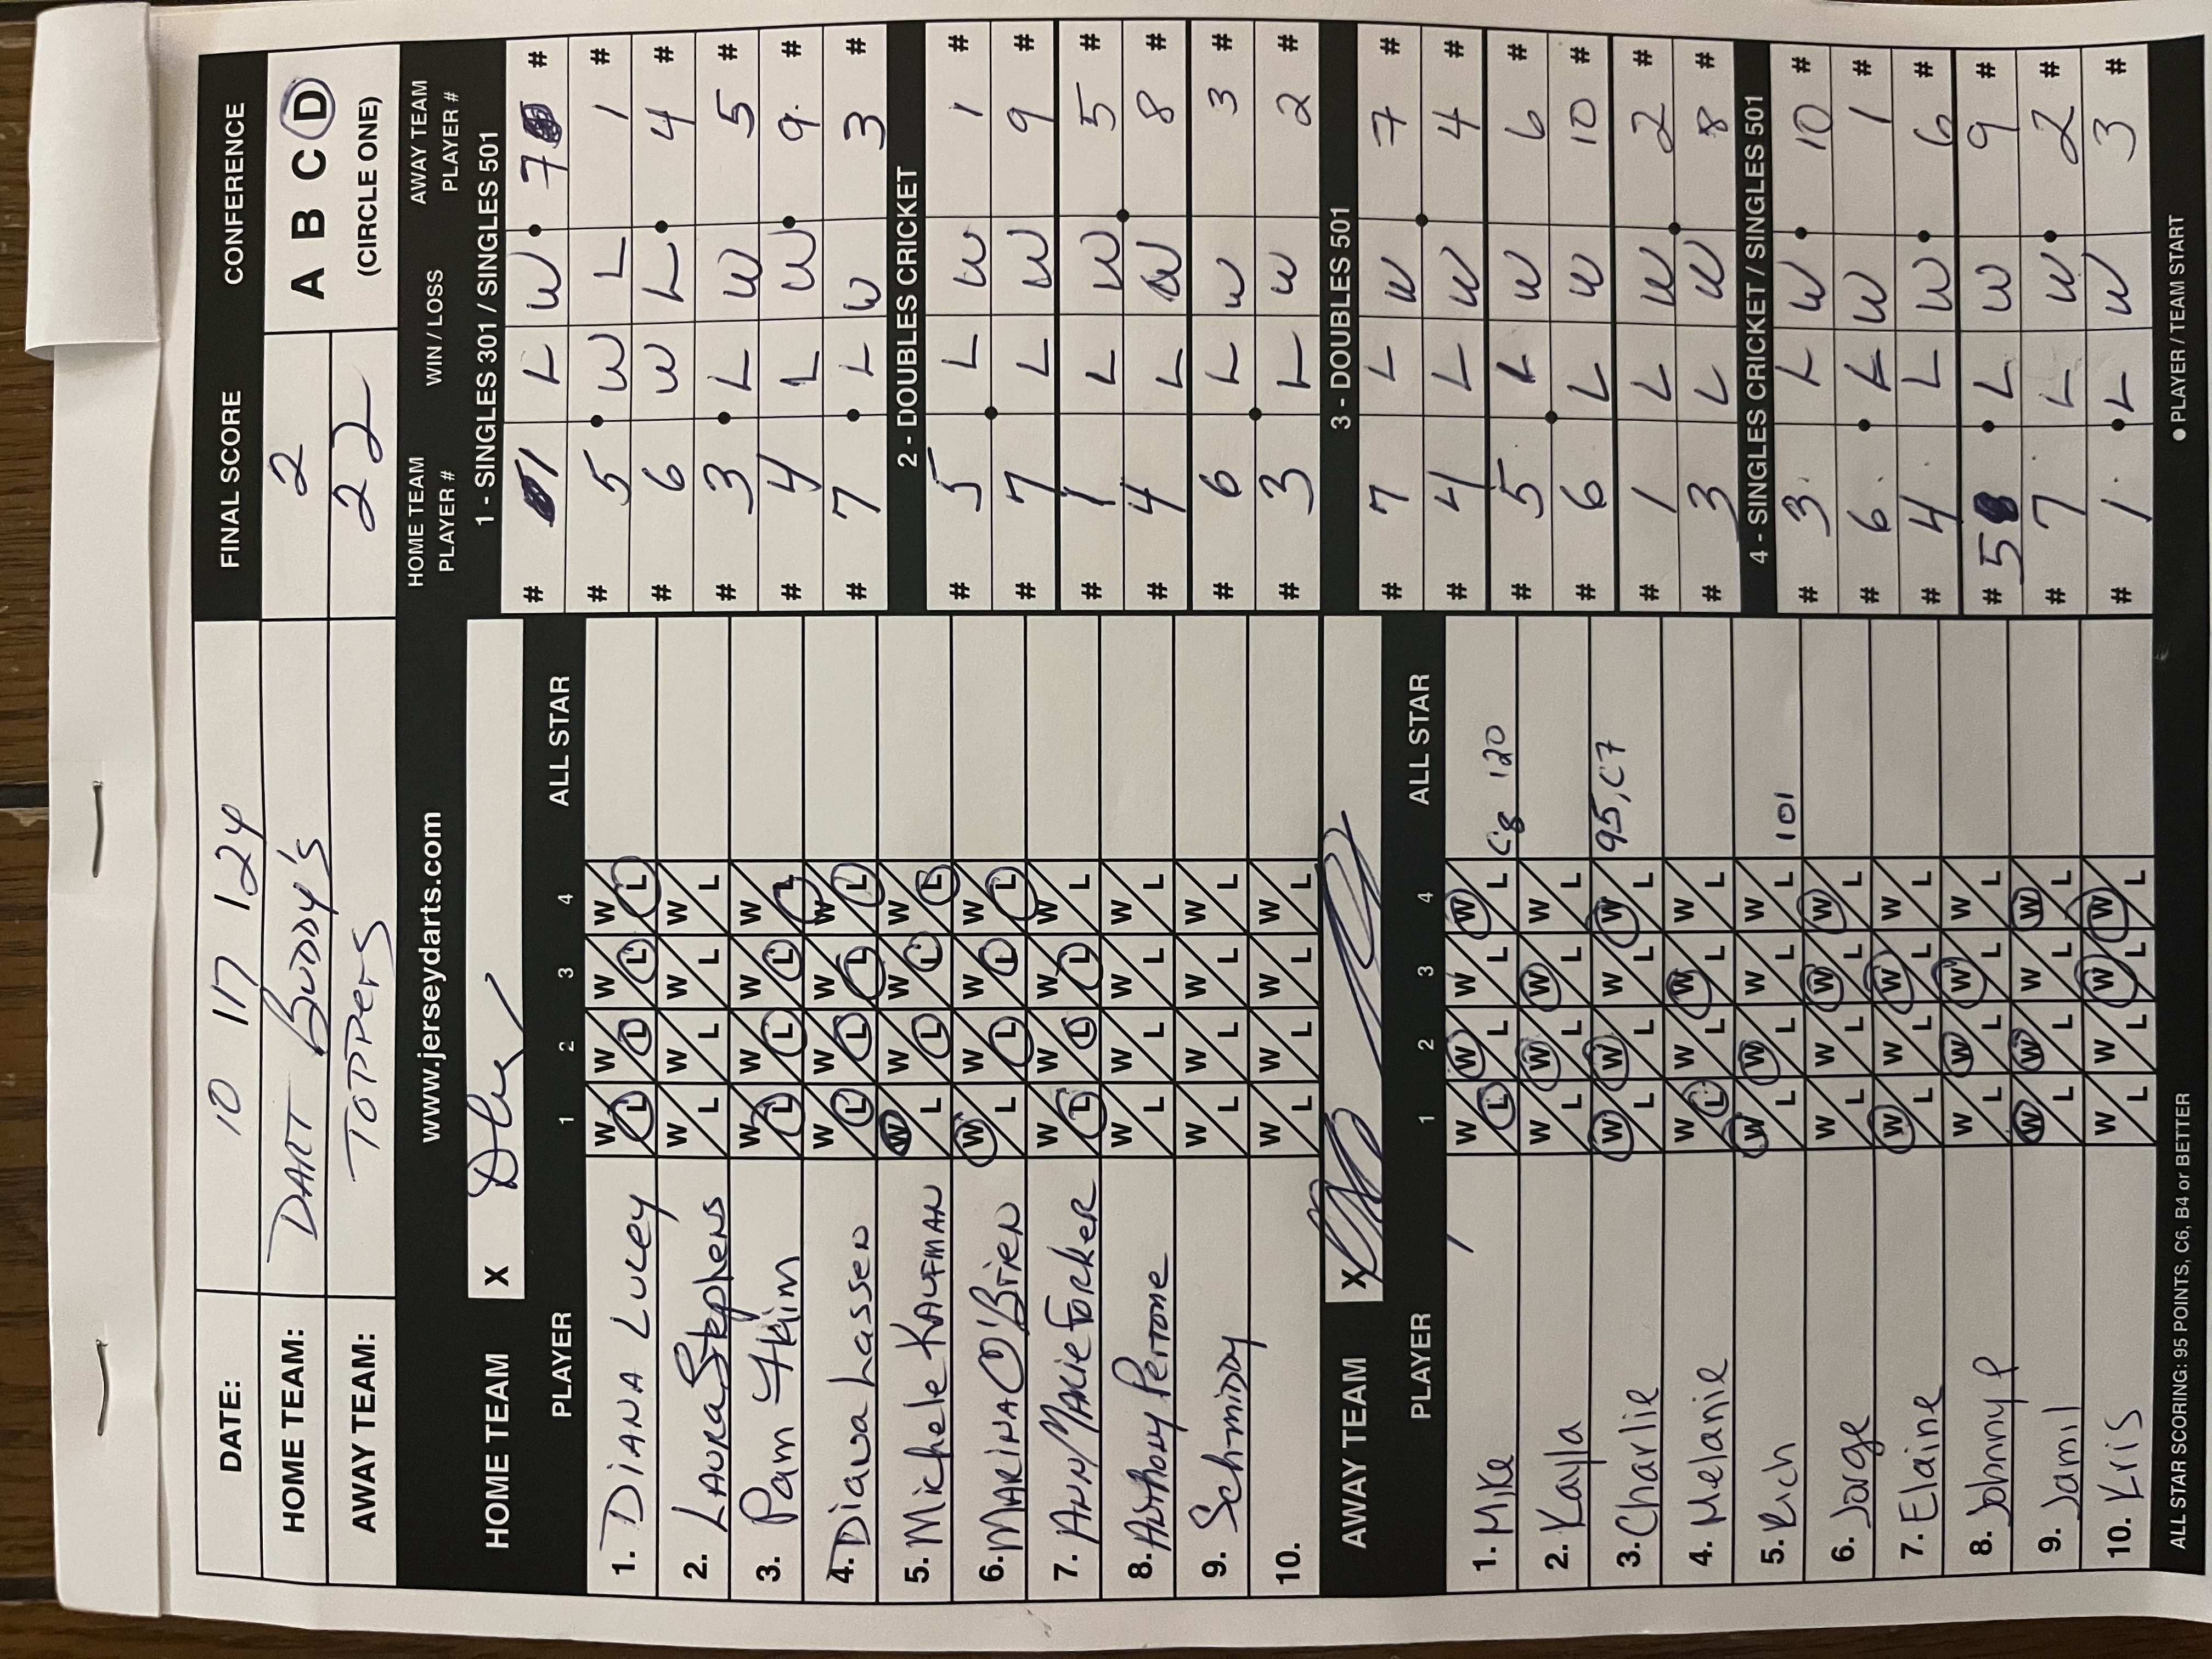 DATE: 10 / 17 / 24 FINAL SCORE CONFERENCE
HOME TEAM: DART BUDDY'S 2 A B C D
AWAY TEAM: TOPPERS 22 (CIRCLE ONE)
www.jerseydarts.com
HOME TEAM X
PLAYER 1 2 3 4 ALL STAR
1. DIANA LUCEY W L W L W L W L
2. LAURA Stephens W L W L W L W L
3. Pam W L W L W L W L
4. Diana Lassen W L W L W L W L
5. Michele KAUFMAN W L W L W L W L
6. MARINA O'BRIEN W L W L W L W L
7. ANN MARIE FORKER W L W L W L W L
8. Anthony Pertone W L W L W L W L
9. Schmiddy W L W L W L W L
10. W L W L W L W L
AWAY TEAM X
PLAYER 1 2 3 4 ALL STAR
1. Mike W L W L W L W L C8 120
2. Kayla W L W L W L W L
3. Charlie W L W L W L W L 95, C7
4. Melanie W L W L W L W L
5. Rich W L W L W L W L 101
6. Jorge W L W L W L W L
7. Elaine W L W L W L W L
8. Johnny P W L W L W L W L
9. Jamil W L W L W L W L
10. Kris W L W L W L W L
ALL STAR SCORING: 95 POINTS, C6, B4 or BETTER
HOME TEAM PLAYER # WIN / LOSS AWAY TEAM PLAYER #
1 - SINGLES 301 / SINGLES 501
# 1 L W 7 #
# 5 W L 1 #
# 6 W L 4 #
# 3 L W 5 #
# 4 L W 9 #
# 7 L W 3 #
2 - DOUBLES CRICKET
# 5 L W 1 #
# 7 L W 9 #
# 1 L W 5 #
# 4 L W 8 #
# 6 L W 3 #
# 3 L W 2 #
3 - DOUBLES 501
# 7 L W 7 #
# 4 L W 4 #
# 5 L W 6 #
# 6 L W 10 #
# 1 L W 2 #
# 3 L W 8 #
4 - SINGLES CRICKET / SINGLES 501
# 3 L W 10 #
# 6 L W 1 #
# 4 L W 6 #
# 5 L W 9 #
# 7 L W 2 #
# 1 L W 3 #
● PLAYER / TEAM START